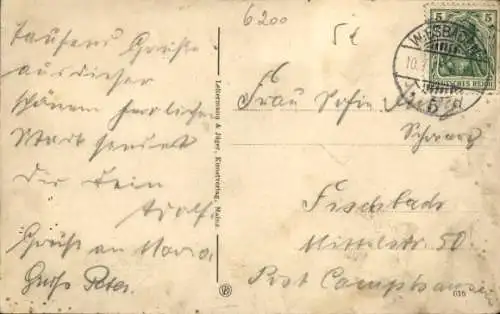 6200
5€
5 5
WIESBADEN
10.
DEUTSCHES REICH
Tausend Grüße
aus dieser
schönen herrlichen
Stadt sendet
Dir Dein
Adolf.
Gruß an Maria
Gruß Peter.
Leltermann & Jäger, Kunstverlag, Mainz
Frau Sofie
Schwarz
Fischbach
Mittelstr 50.
Post Camphausen
015